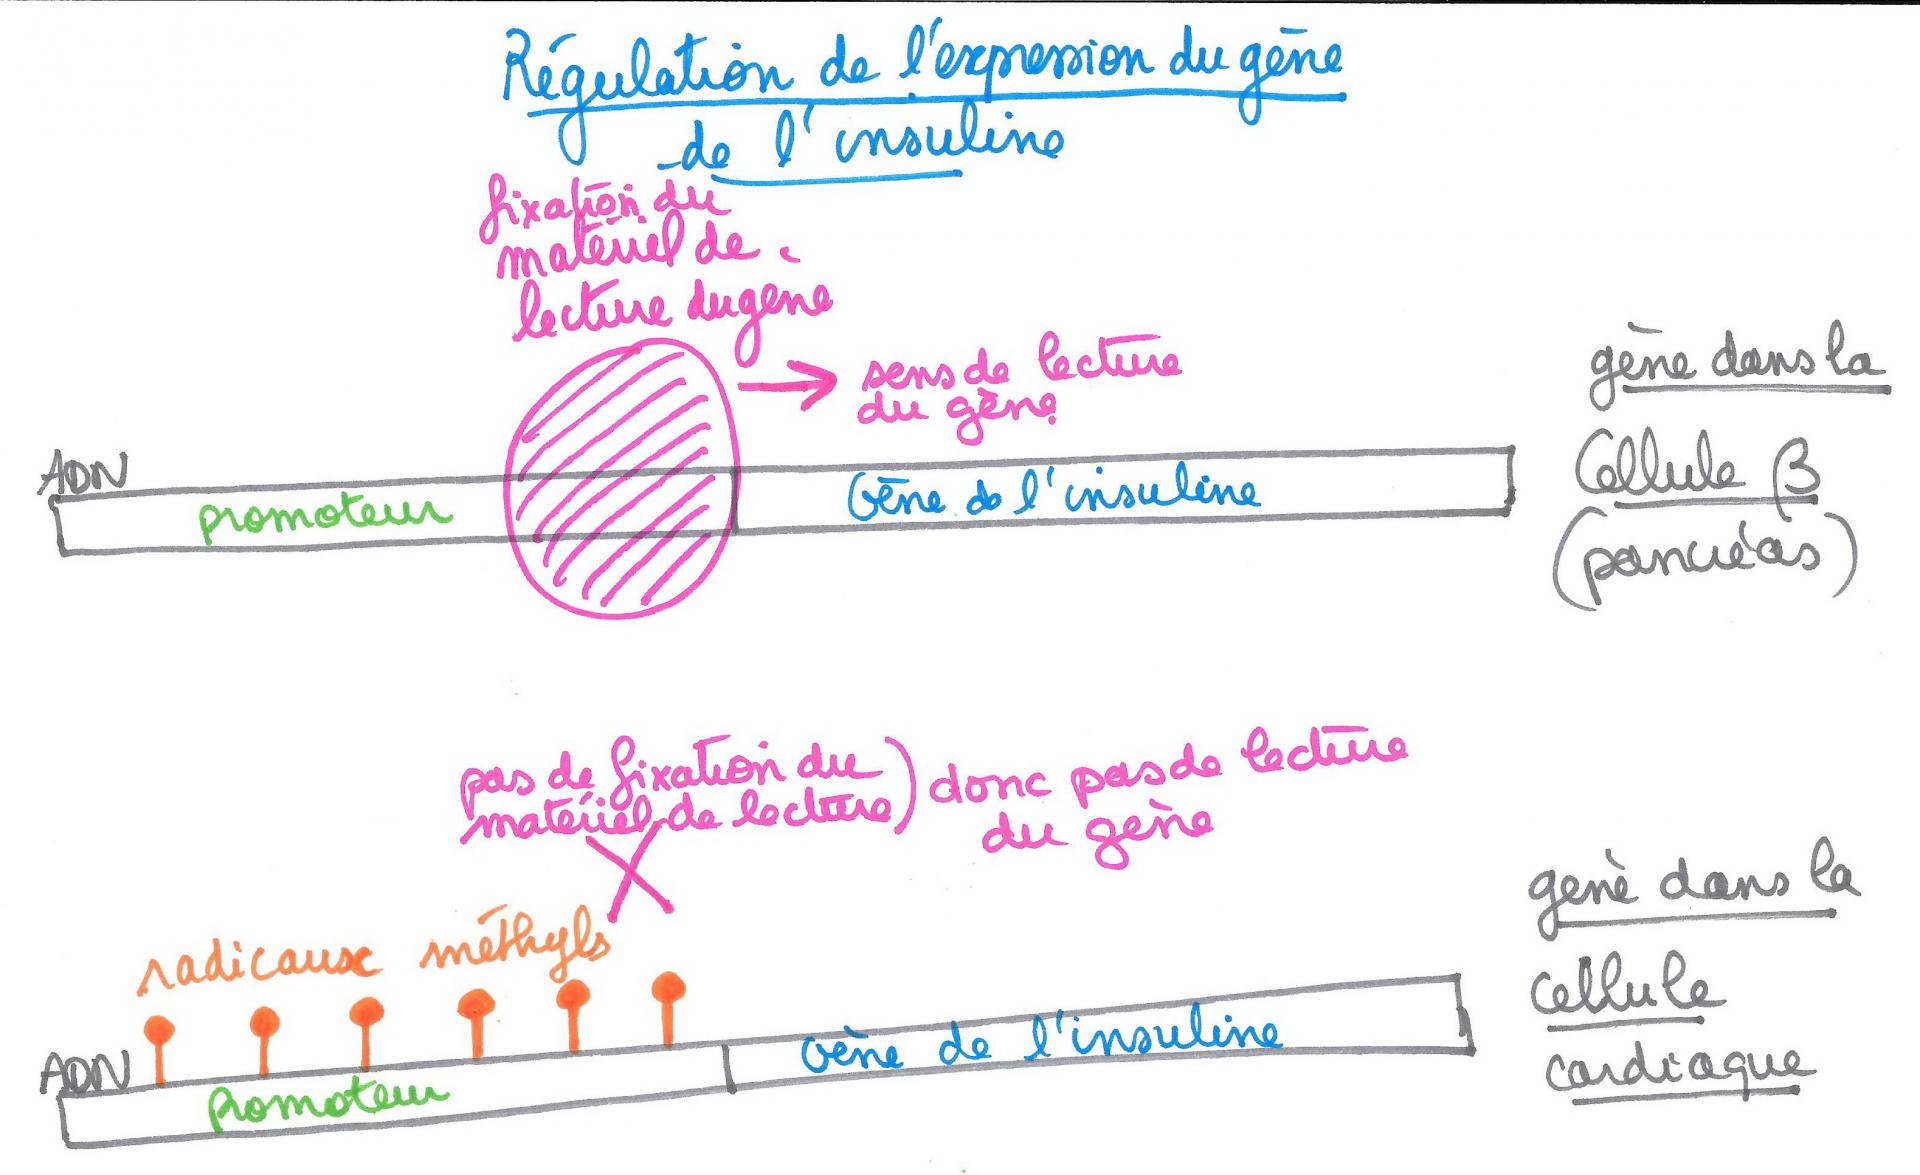 Régulation de l'expression du gène
de l'insuline
fixation du
matériel de
lecture du gène
sens de lecture
du gène
gène dans la
Cellule β
(pancréas)
ADN
promoteur
Gène de l'insuline
pas de fixation du
matériel de lecture)
donc pas de lecture
du gène
radicaux méthyls
gène dans la
cellule
cardiaque
ADN
promoteur
Gène de l'insuline